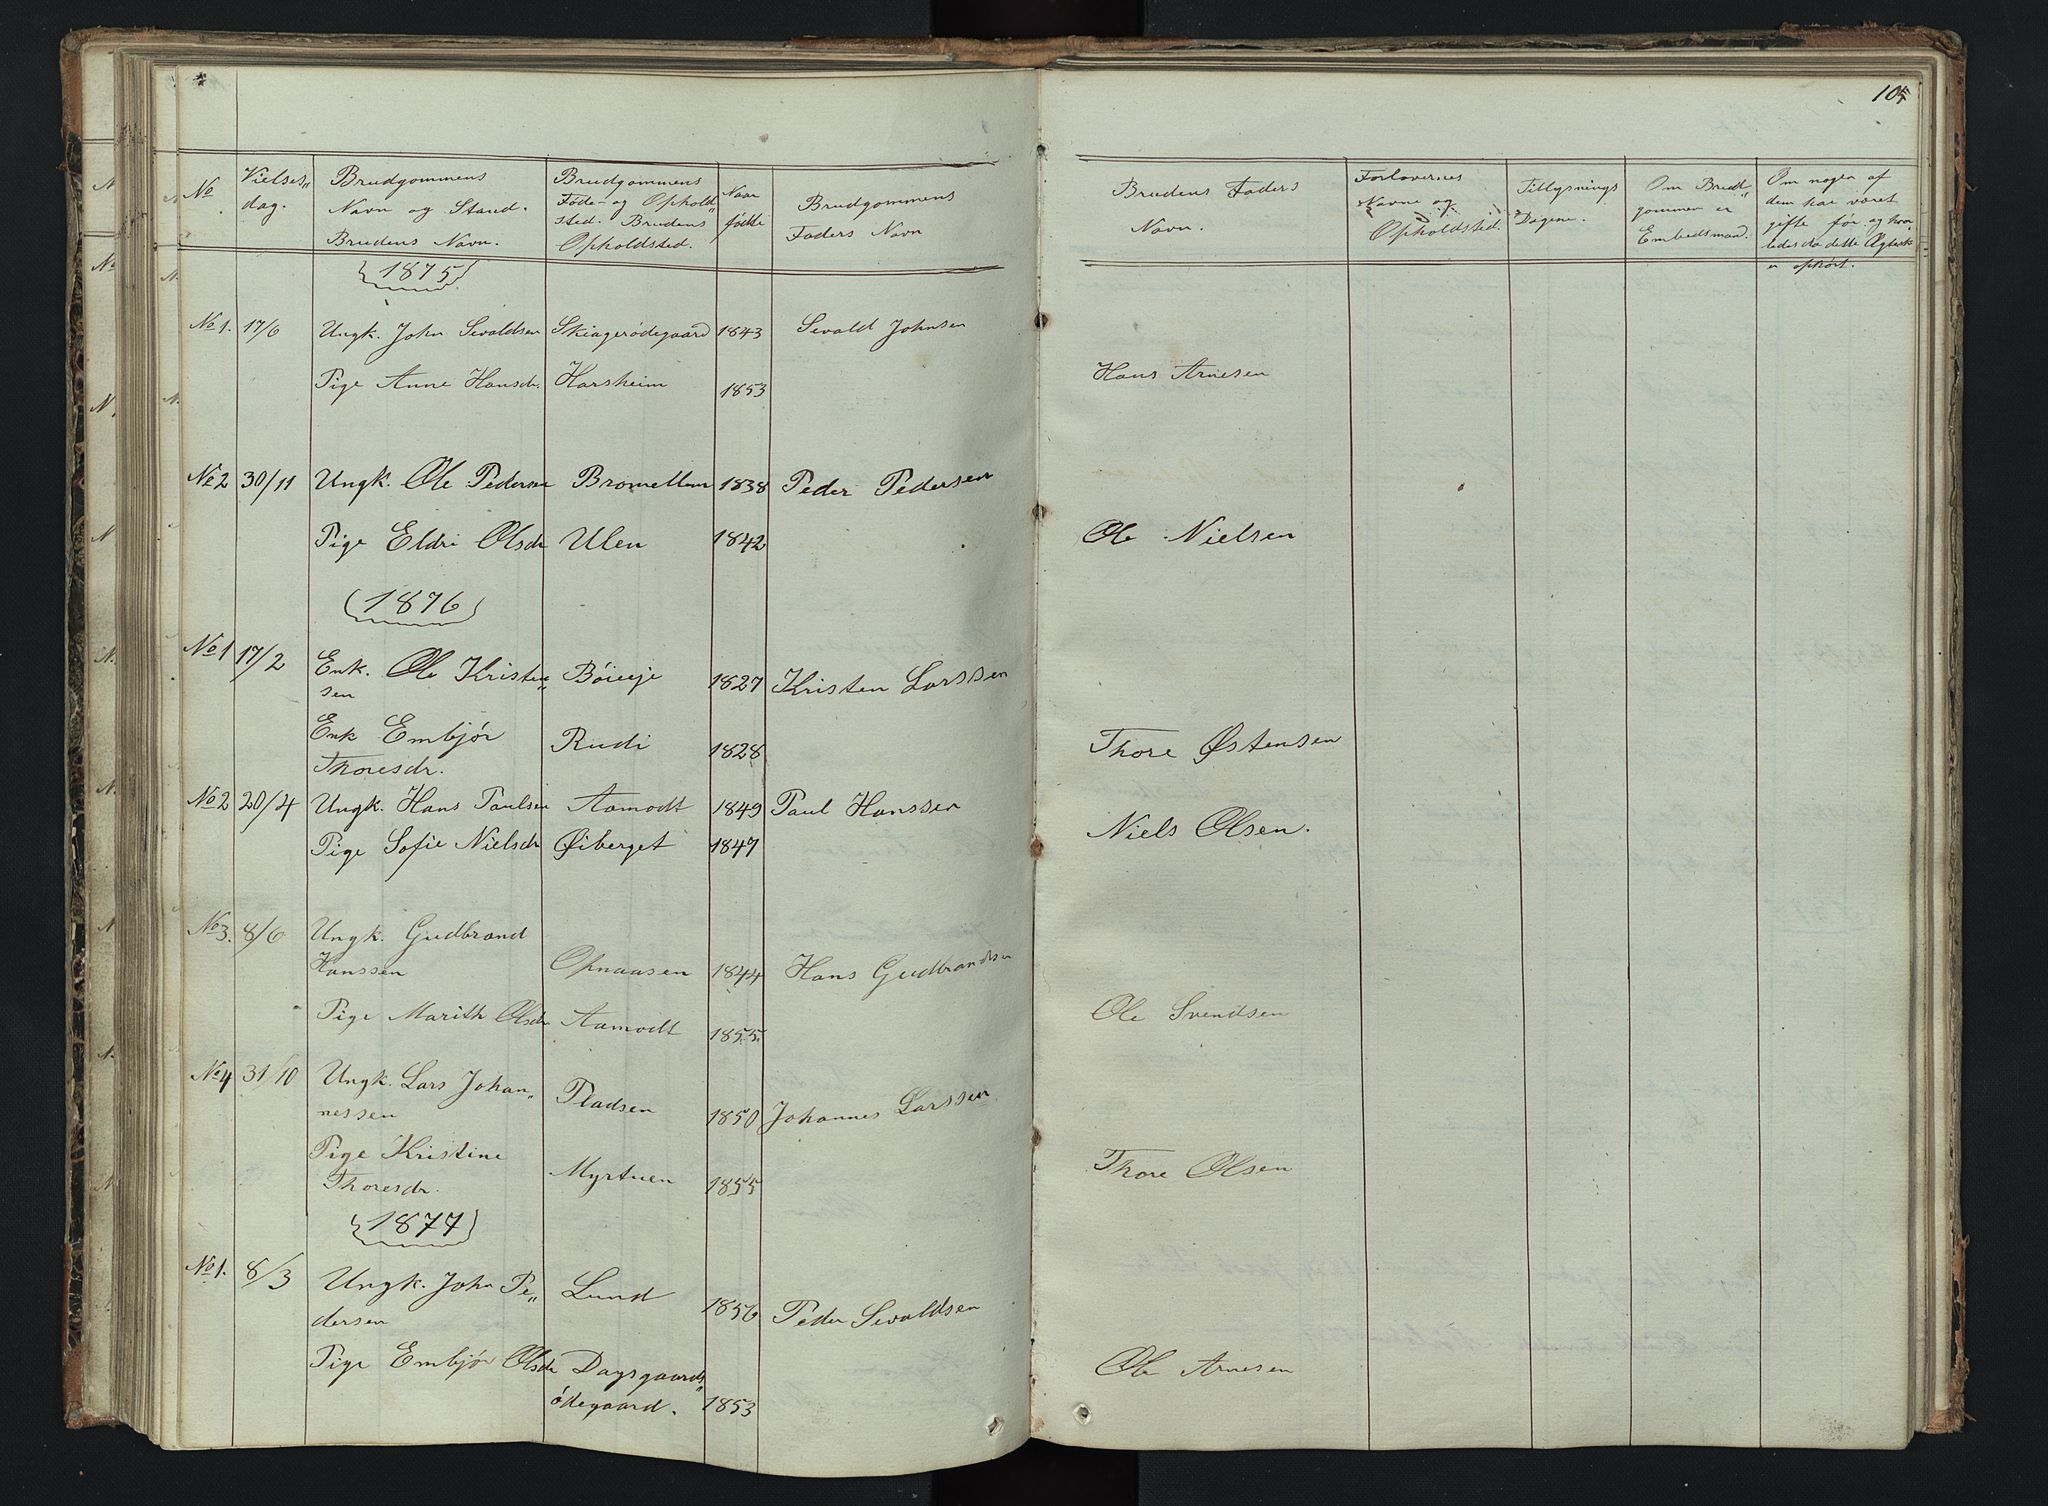 105
No
Vielses"
dag.
Brudgommens
Navn og Stand.
Brudens Navn.
Brudgommens
Føde- og Ophold"
sted. Brudens
Opholdsted.
Naar
fødte
Brudgommens
Faders Navn
Brudens Faders
Navn.
Forlovernes
Navne og
Opholdsted.
Tillysnings
Dagene.
Om Brud"
gommen er
Embedsmand.
Om nogen af
dem har været
gifte før, og hvor
ledes da dette Ægtesk
er ophørt.
1875
No 1. 17/6 Ungk. John Sevaldsen Skiagerødegaard 1843 Sevald Johnsen
Pige Anne Hansdr. Harsheim 1853 Hans Arnesen
No 2 30/11 Ungk. Ole Pedersen 1838 Peder Pedersen
Pige Eldri Olsdr Ulen 1842 Ole Nielsen
1876
No 1 17/2 Enk. Ole Kristen" 1827 Kristen Larssen
sen
Enk Embjør Rudi 1828 Thore Østensen
Thoresdr.
No 2 20/4 Ungk. Hans Paulsen Aamodt 1849 Paul Hanssen
Pige Sofie Nielsdr Øiberget 1847 Niels Olsen.
No 3. 8/6 Ungk. Gudbrand
Hanssen Opnaasen 1844 Hans Gudbrandsen
Pige Marith Olsdr Aamodt 1855. Ole Svendsen
No 4 31/10 Ungk. Lars Johan"
nessen Pladsen 1850 Johannes Larssen
Pige Kristine
Thoresdr. Myrtuen 1855 Thore Olsen
1877
No 1. 8/3 Ungk. John Pe" Lund 1856 Peder Sevaldsen
dersen
Pige Embjør Olsdr Dagsgaards" Ole Arnesen
ødegaard. 1853